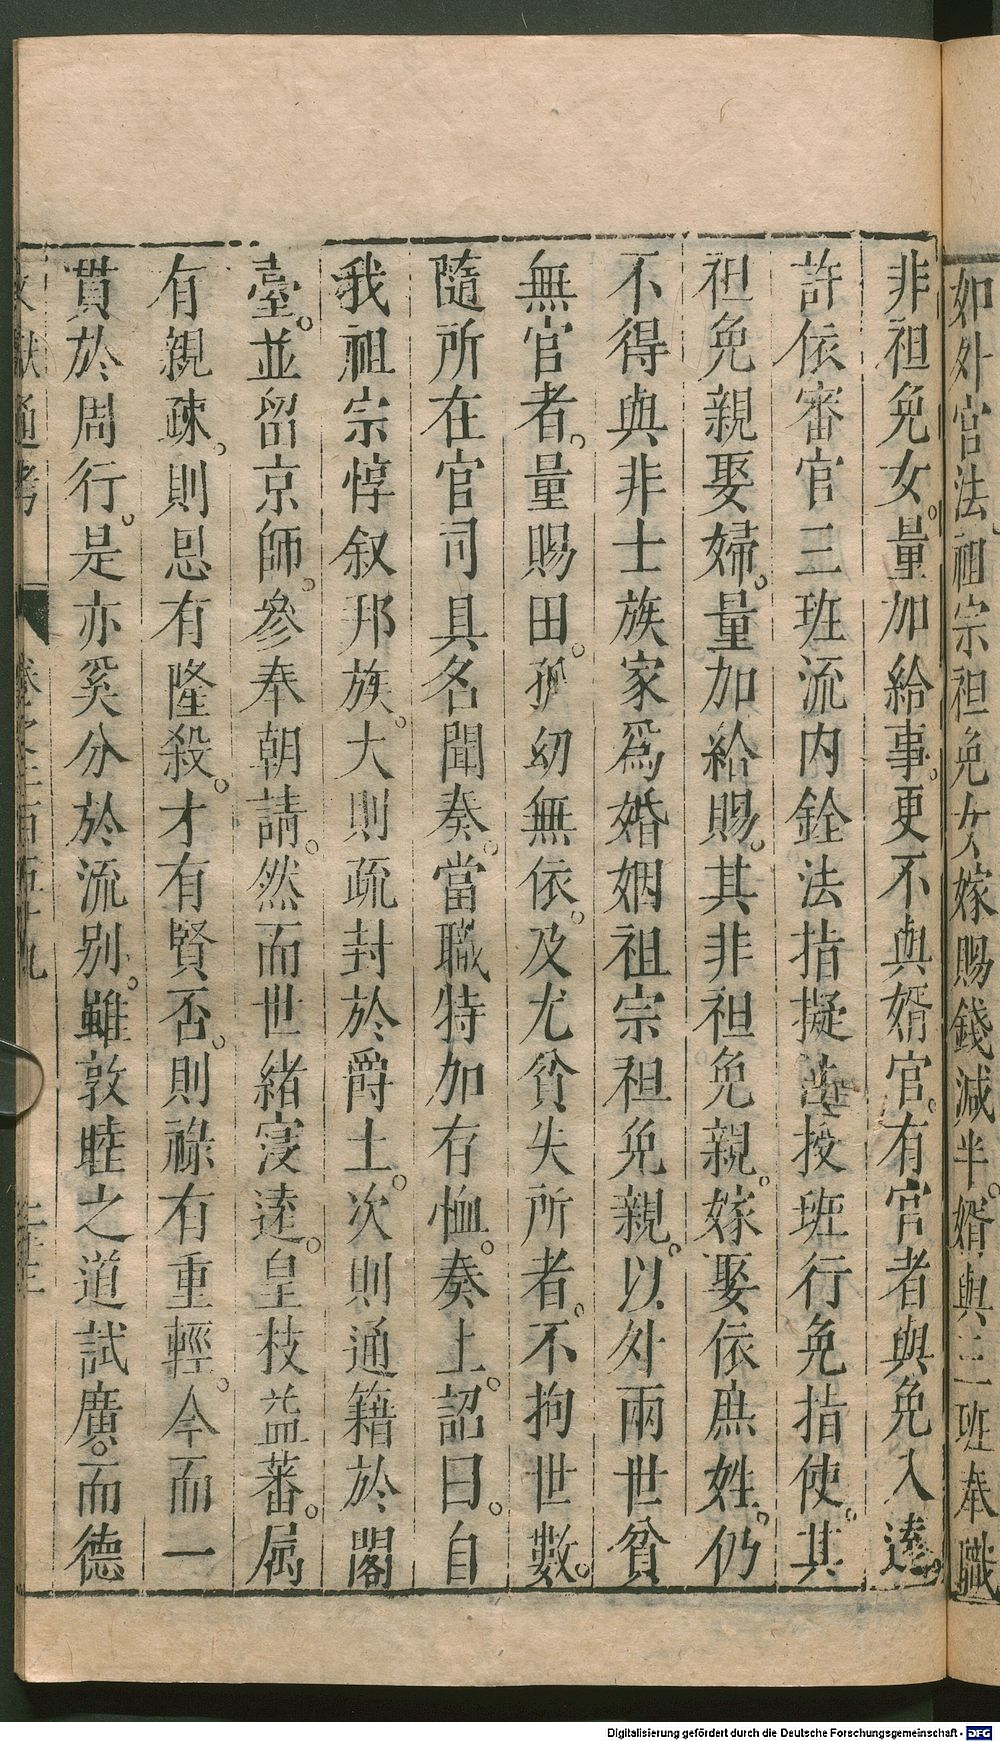 如外官法祖宗袒免女嫁賜錢減半。婿與三班奉職
非袒免女。量加給事。更不與婿官。有官者與免入遠。
許依審官三班流內銓法指擬差授班行免指使。其
袒免親娶婦。量加給賜。其非袒免親。嫁娶依庶姓。仍
不得與非士族家爲婚姻祖宗袒免親。以外兩世貧
無官者。量賜田。孤幼無依。及尤貧失所者。不拘世數。
隨所在官司具名聞奏。當職特加有恤。奏上。詔曰。自
我祖宗惇叙邦族。大則疏封於爵土。次則通籍於閣
臺。並留京師。參奉朝請。然而世緒寖遠。皇枝益蕃。屬
有親疎。則恩有隆殺。才有賢否。則祿有重輕。今而一
貫於周行。是亦奚分於流別。雖敦睦之道試廣。而德
文獻通考
Digitalisierung gefördert durch die Deutsche Forschungsgemeinschaft - DFG